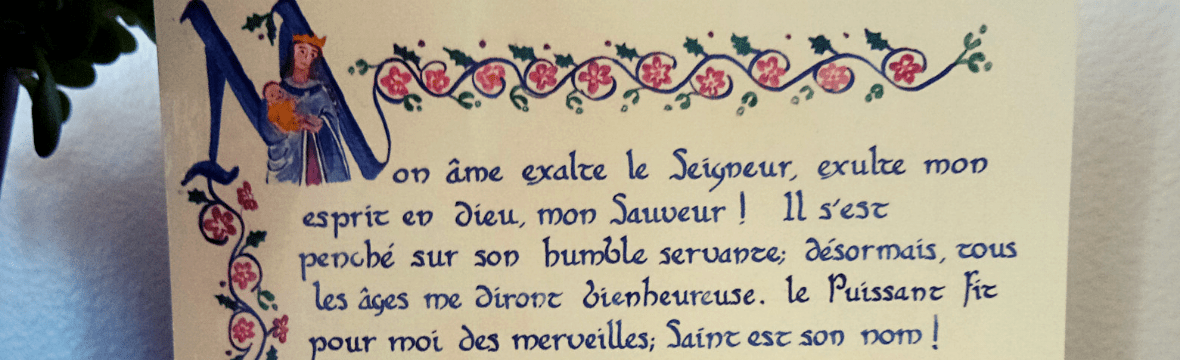 Mon âme exalte le Seigneur, exulte mon
esprit en Dieu, mon Sauveur ! Il s'est
penché sur son humble servante; désormais, tous
les âges me diront bienheureuse. le Puissant fit
pour moi des merveilles; Saint est son nom !